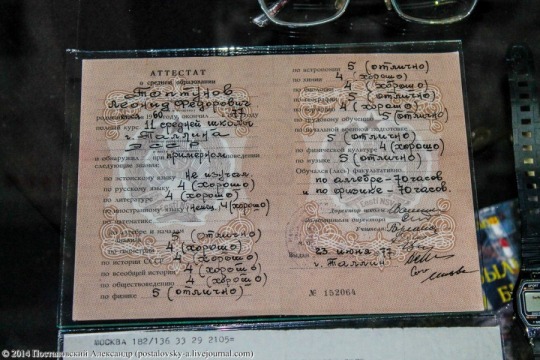 АТТЕСТАТ
о среднем образовании
Топтунов
Леонид Фёдорович
1960 окончил
полный курс 11 средней школы
г. Таллина
ЭССР
и обнаружил при примерном поведении
следующие знания:
по эстонскому языку не изучал
по русскому языку 4 (хорошо)
по литературе 4 (хорошо)
по иностранному языку (немец.) 4 (хорошо)
по математике
по алгебре и началам
анализа 5 (отлично)
по геометрии 4 (хорошо)
по истории СССР 4 (хорошо)
по всеобщей истории 4 (хорошо)
по обществоведению 4 (хорошо)
по физике 5 (отлично)
по астрономии 5 (отлично)
по химии 4 (хорошо)
по биологии 4 (хорошо)
по географии 5 (отлично)
4 (хорошо)
по трудовому обучению 5 (отлично)
по начальной военной подготовке
по физической культуре 4 (хорошо)
по музыке 5 (отлично)
Обучался (лась) факультативно
по алгебре - 70 часов
и по физике - 70 часов.
Директор школы
директора
Учителя
Eesti NSV
Выдан 23 июня 77
г. Таллин
№ 152064
МОСКВА 182/136 33 29 2105=
© 2014 Посталовский Александр (postalovsky-a.livejournal.com)